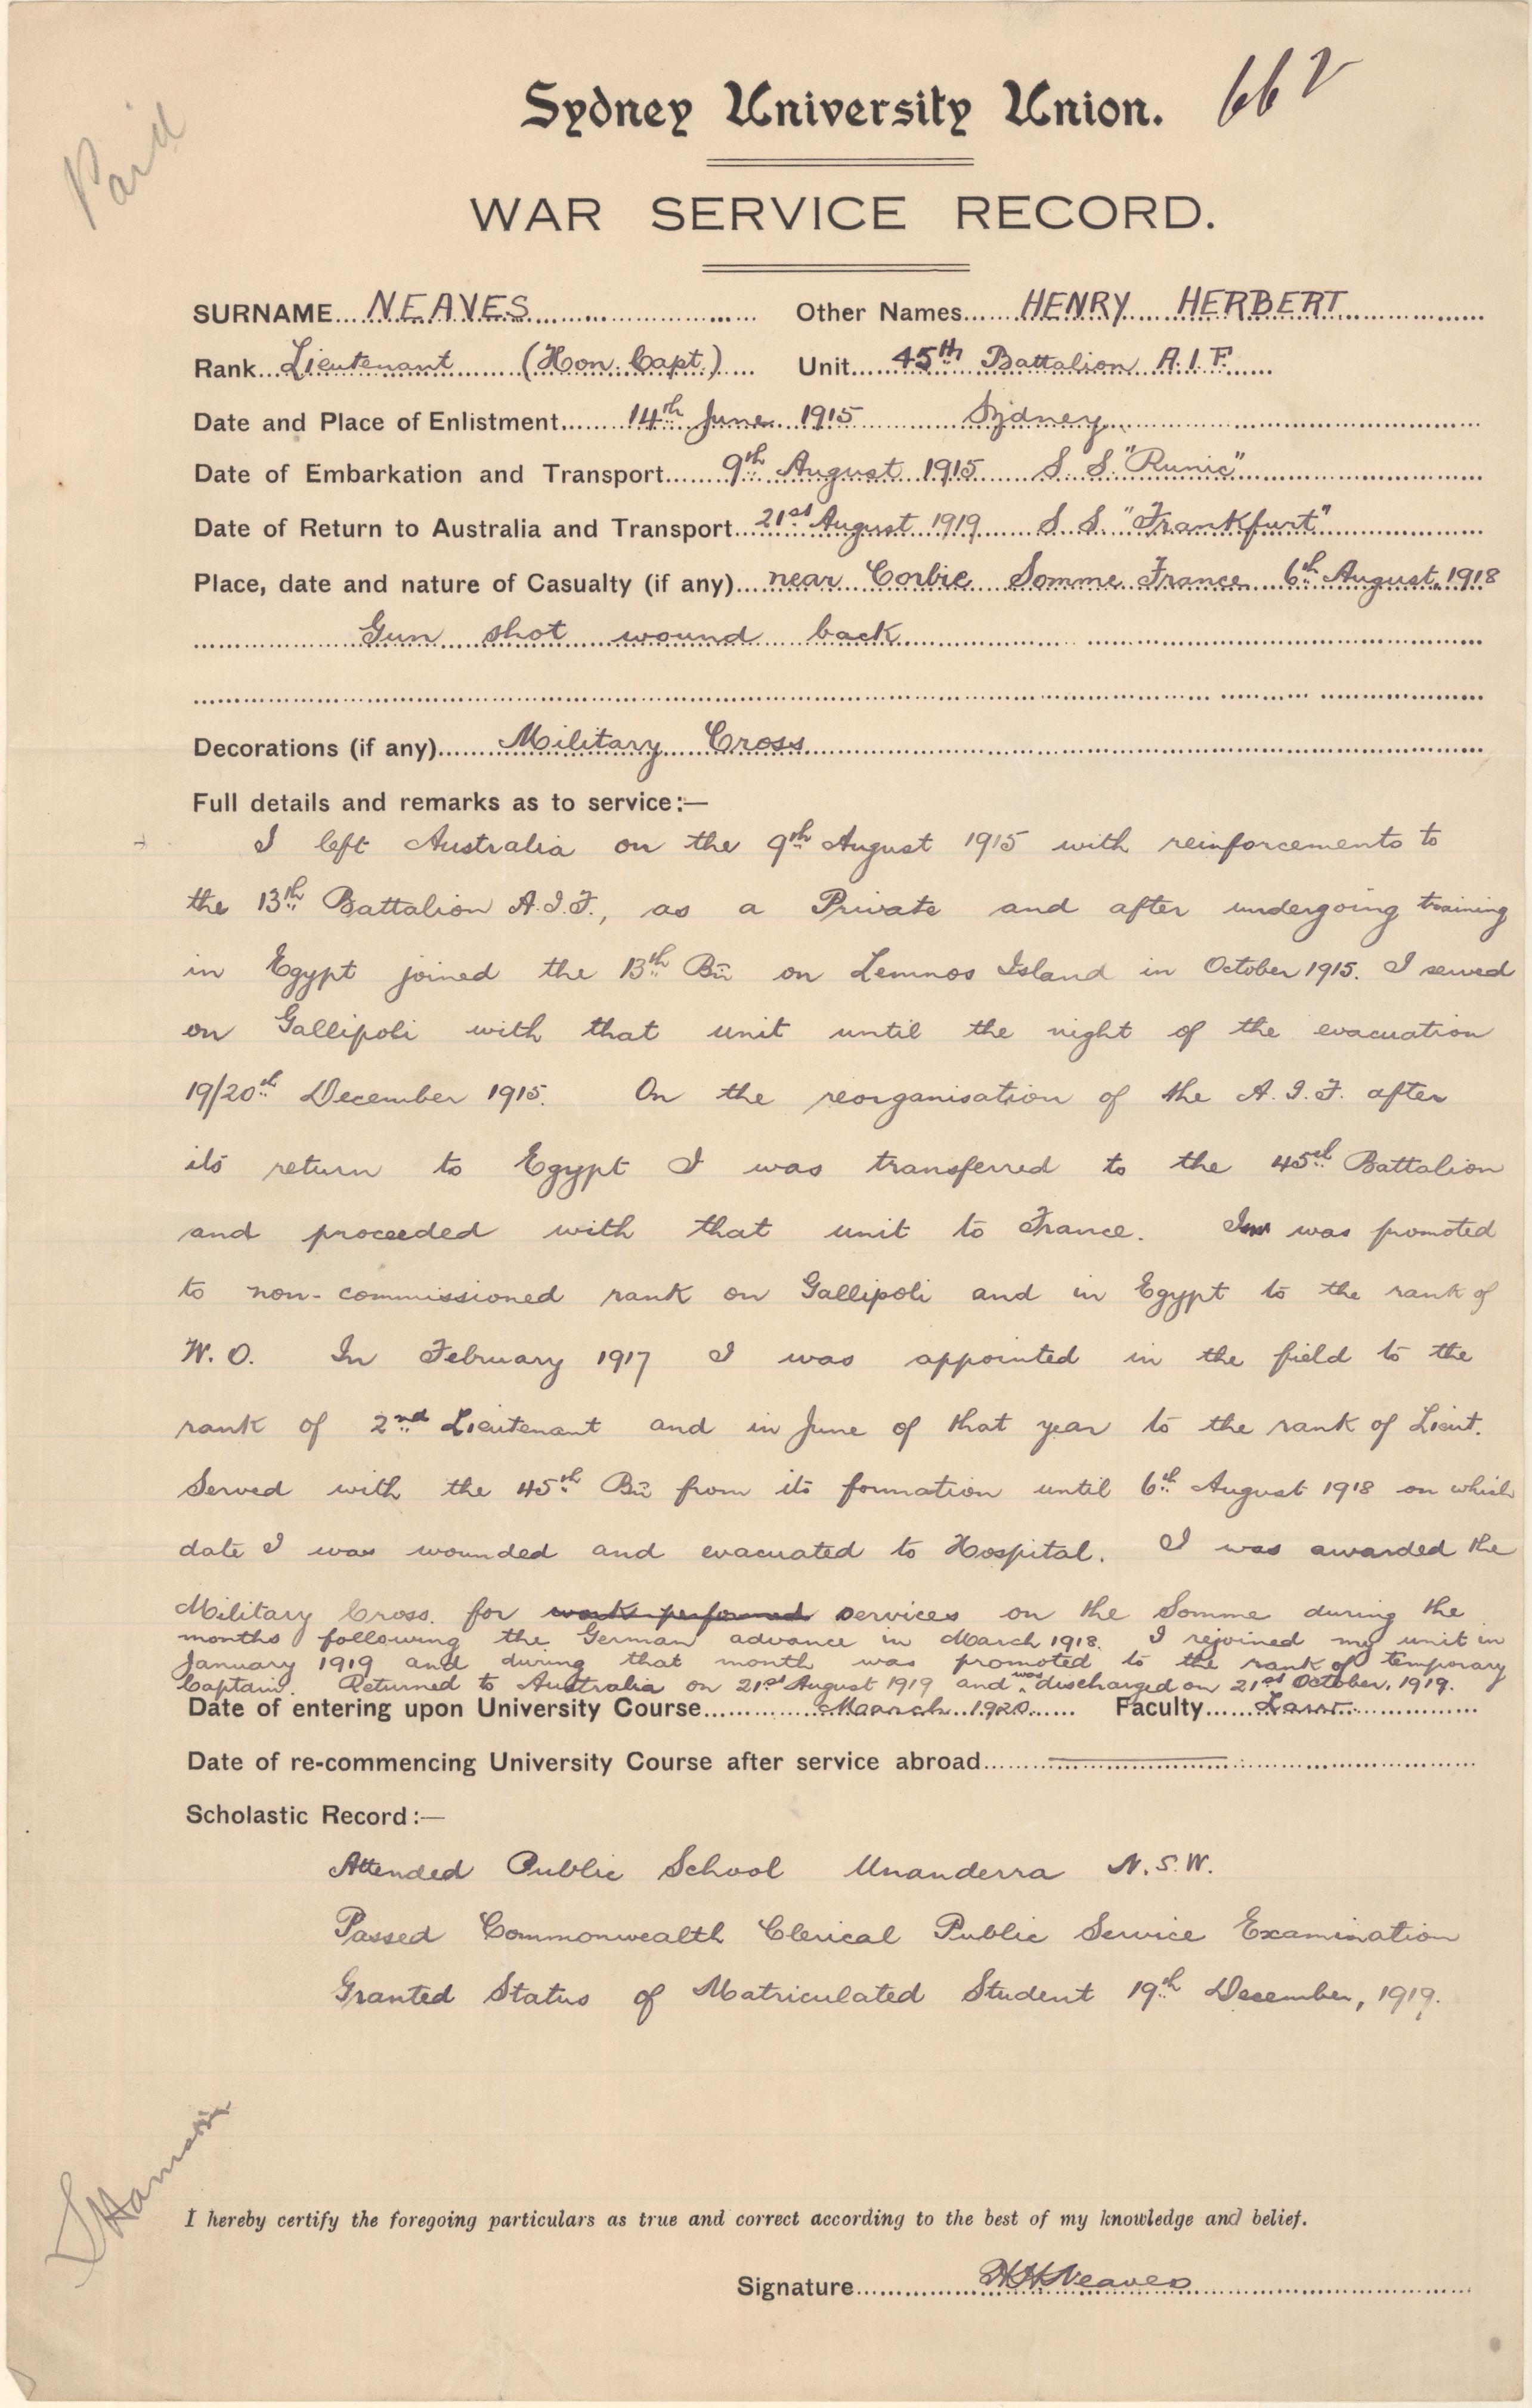 Paid
Sydney University Union. 662
WAR SERVICE RECORD.
SURNAME... NEAVES ... Other Names... HENRY HERBERT
Rank... Lieutenant (Hon. Capt.) ... Unit... 45th Battalion A.I.F.
Date and Place of Enlistment... 14th June 1915 Sydney
Date of Embarkation and Transport... 9th August 1915 S. S. "Runic"
Date of Return to Australia and Transport... 21st August 1919 S. S. "Frankfurt"
Place, date and nature of Casualty (if any)... near Corbie Somme France 6th August, 1918
Gun shot wound back
Decorations (if any)... Military Cross
Full details and remarks as to service:—
I left Australia on the 9th August 1915 with reinforcements to
the 13th Battalion A.I.F., as a Private and after undergoing training
in Egypt joined the 13th Bn on Lemnos Island in October 1915. I served
on Gallipoli with that unit until the night of the evacuation
19/20th December 1915. On the reorganisation of the A.I.F. after
its return to Egypt I was transferred to the 45th Battalion
and proceeded with that unit to France. I was promoted
to non-commissioned rank on Gallipoli and in Egypt to the rank of
W.O. In February 1917 I was appointed in the field to the
rank of 2nd Lieutenant and in June of that year to the rank of Lieut.
Served with the 45th Bn from its formation until 6th August 1918 on which
date I was wounded and evacuated to Hospital. I was awarded the
Military Cross for work performed services on the Somme during the
months following the German advance in March 1918. I rejoined my unit in
January 1919 and during that month was promoted to the rank of temporary
Captain. Returned to Australia on 21st August 1919 and was discharged on 21st October, 1919.
Date of entering upon University Course... March 1920 ... Faculty... Law
Date of re-commencing University Course after service abroad...
Scholastic Record:—
Attended Public School Unanderra N.S.W.
Passed Commonwealth Clerical Public Service Examination
Granted Status of Matriculated Student 19th December, 1919.
I hereby certify the foregoing particulars as true and correct according to the best of my knowledge and belief.
Signature... HHNeaves